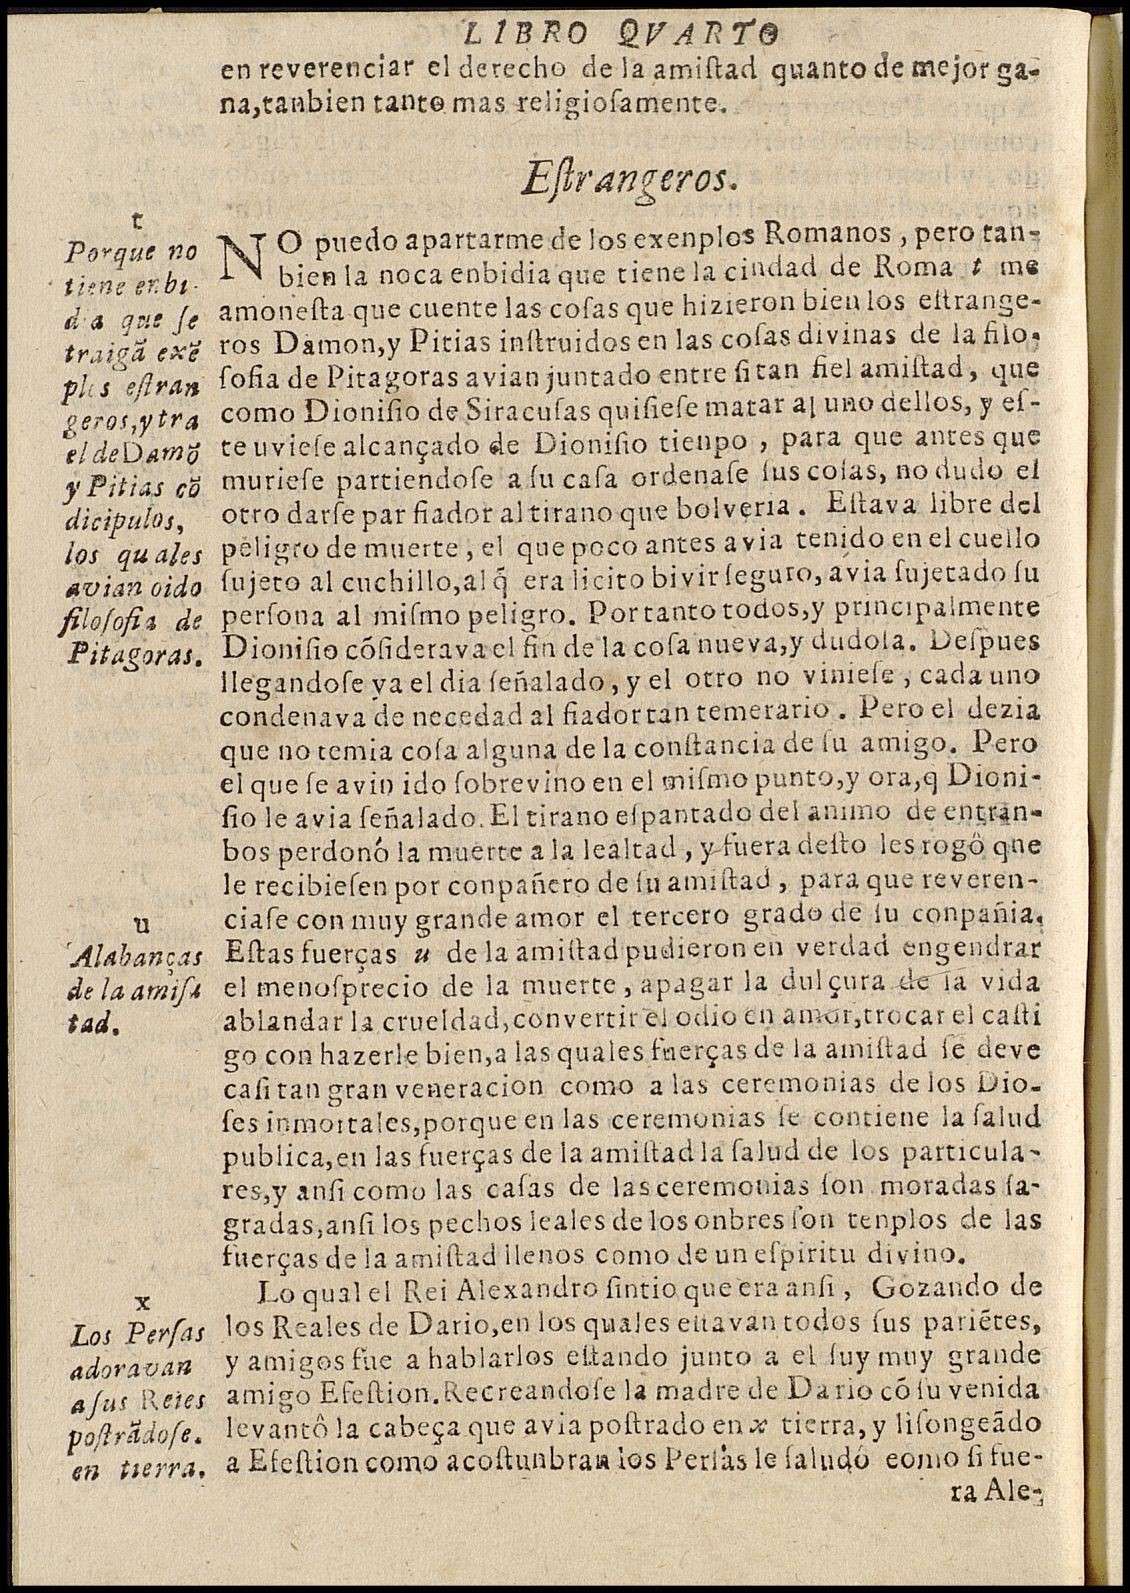 LIBRO QVARTO
en reverenciar el derecho de la amiſtad quanto de mejor ga-
na, tanbien tanto mas religioſamente.
Eſtrangeros.
NO puedo apartarme de los exenplos Romanos, pero tan-
bien la noca enbidia que tiene la ciudad de Roma t me
amoneſta que cuente las coſas que hizieron bien los eſtrange-
ros Damon, y Pitias inſtruidos en las coſas divinas de la filo-
ſofia de Pitagoras avian juntado entre ſi tan fiel amiſtad, que
como Dioniſio de Siracuſas quiſieſe matar al uno dellos, y eſ-
te uvieſe alcançado de Dioniſio tienpo, para que antes que
murieſe partiendoſe a ſu caſa ordenaſe ſus coſas, no dudo el
otro darſe par fiador al tirano que bolveria. Eſtava libre del
peligro de muerte, el que poco antes avia tenido en el cuello
ſujeto al cuchillo, al q̃ era licito bivir ſeguro, avia ſujetado ſu
perſona al miſmo peligro. Por tanto todos, y principalmente
Dioniſio cõſiderava el fin de la coſa nueva, y dudoſa. Deſpues
llegandoſe ya el dia ſeñalado, y el otro no vinieſe, cada uno
condenava de necedad al fiador tan temerario. Pero el dezia
que no temia coſa alguna de la conſtancia de ſu amigo. Pero
el que ſe avin ido ſobrevino en el miſmo punto, y ora, q Dioni-
ſio le avia ſeñalado. El tirano eſpantado del animo de entran-
bos perdonó la muerte a la lealtad, y fuera deſto les rogô que
le recibieſen por conpañero de ſu amiſtad, para que reveren-
ciaſe con muy grande amor el tercero grado de ſu conpañia.
Eſtas fuerças u de la amiſtad pudieron en verdad engendrar
el menoſprecio de la muerte, apagar la dulçura de la vida
ablandar la crueldad, convertir el odio en amor, trocar el caſti
go con hazerle bien, a las quales fuerças de la amiſtad ſe deve
caſi tan gran veneracion como a las ceremonias de los Dio-
ſes inmortales, porque en las ceremonias ſe contiene la ſalud
publica, en las fuerças de la amiſtad la ſalud de los particula-
res, y anſi como las caſas de las ceremonias ſon moradas ſa-
gradas, anſi los pechos leales de los onbres ſon tenplos de las
fuerças de la amiſtad llenos como de un eſpiritu divino.
Lo qual el Rei Alexandro ſintio que era anſi, Gozando de
los Reales de Dario, en los quales eſtavan todos ſus pariẽtes,
y amigos fue a hablarlos eſtando junto a el ſuy muy grande
amigo Efeſtion. Recreandoſe la madre de Dario cõ ſu venida
levantô la cabeça que avia poſtrado en x tierra, y liſongeãdo
a Efeſtion como acoſtunbran los Perſas le ſaludó eomo ſi fue-
ra Ale-
t
Porque no
tiene enbi-
dia que ſe
traigã exẽ
plos eſtran
geros, y tra
el de Damõ
y Pitias cõ
dicipulos,
los quales
avian oido
filoſofia de
Pitagoras.
u
Alabanças
de la amiſt
tad.
x
Los Perſas
adoravan
a ſus Reies
poſtrãdoſe.
en tierra.